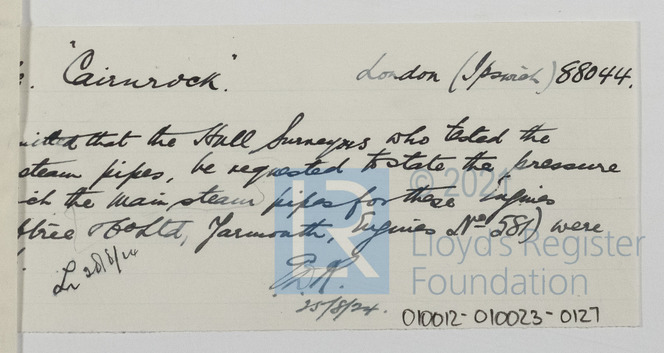 "Cairnrock". London (Ipswich) 88044.
itted that the Hull Surveyors who tested the
steam pipes, be requested to state the pressure
ich the main steam pipes for these Engines
btree & Co Ltd, Yarmouth, Engines No 581) were
Lr 28/8/24
25/8/24.
010012-010023-0127
© 2021
LR
Lloyd's Register
Foundation